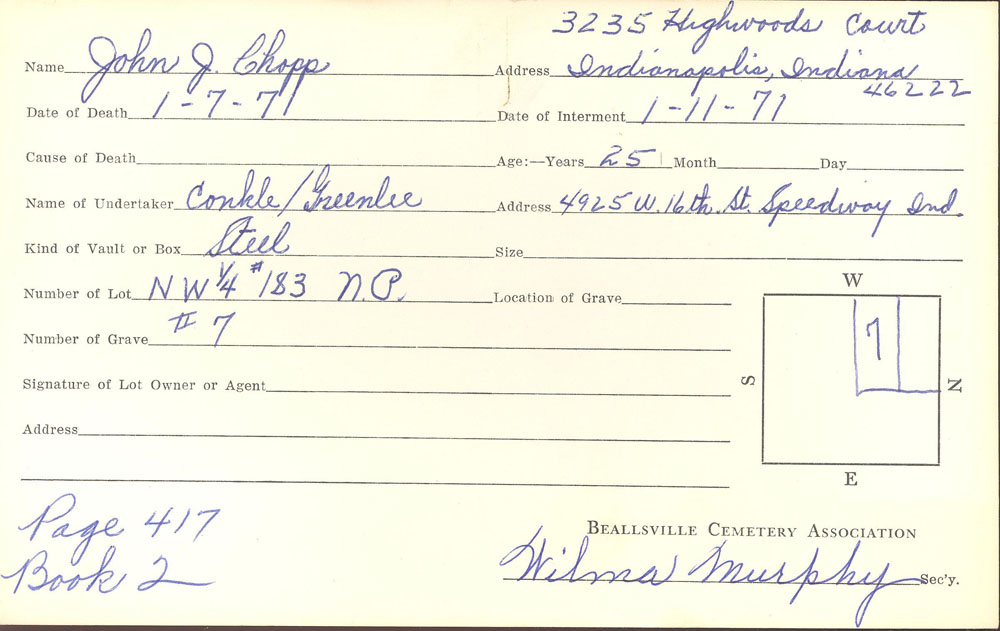 3235 Highwoods Court
Name John J. Chopp Address Indianapolis, Indiana
46222
Date of Death 1-7-71 Date of Interment 1-11-71
Cause of Death Age:—Years 25 Month Day
Name of Undertaker Conkle/Greenlee Address 4925 W. 16th. St. Speedway Ind.
Kind of Vault or Box Steel Size
Number of Lot NW 1/4 #183 N.P. Location of Grave
W
Number of Grave # 7
7
S
N
Signature of Lot Owner or Agent
Address
E
Page 417
Book 2
Beallsville Cemetery Association
Wilma Murphy Sec'y.